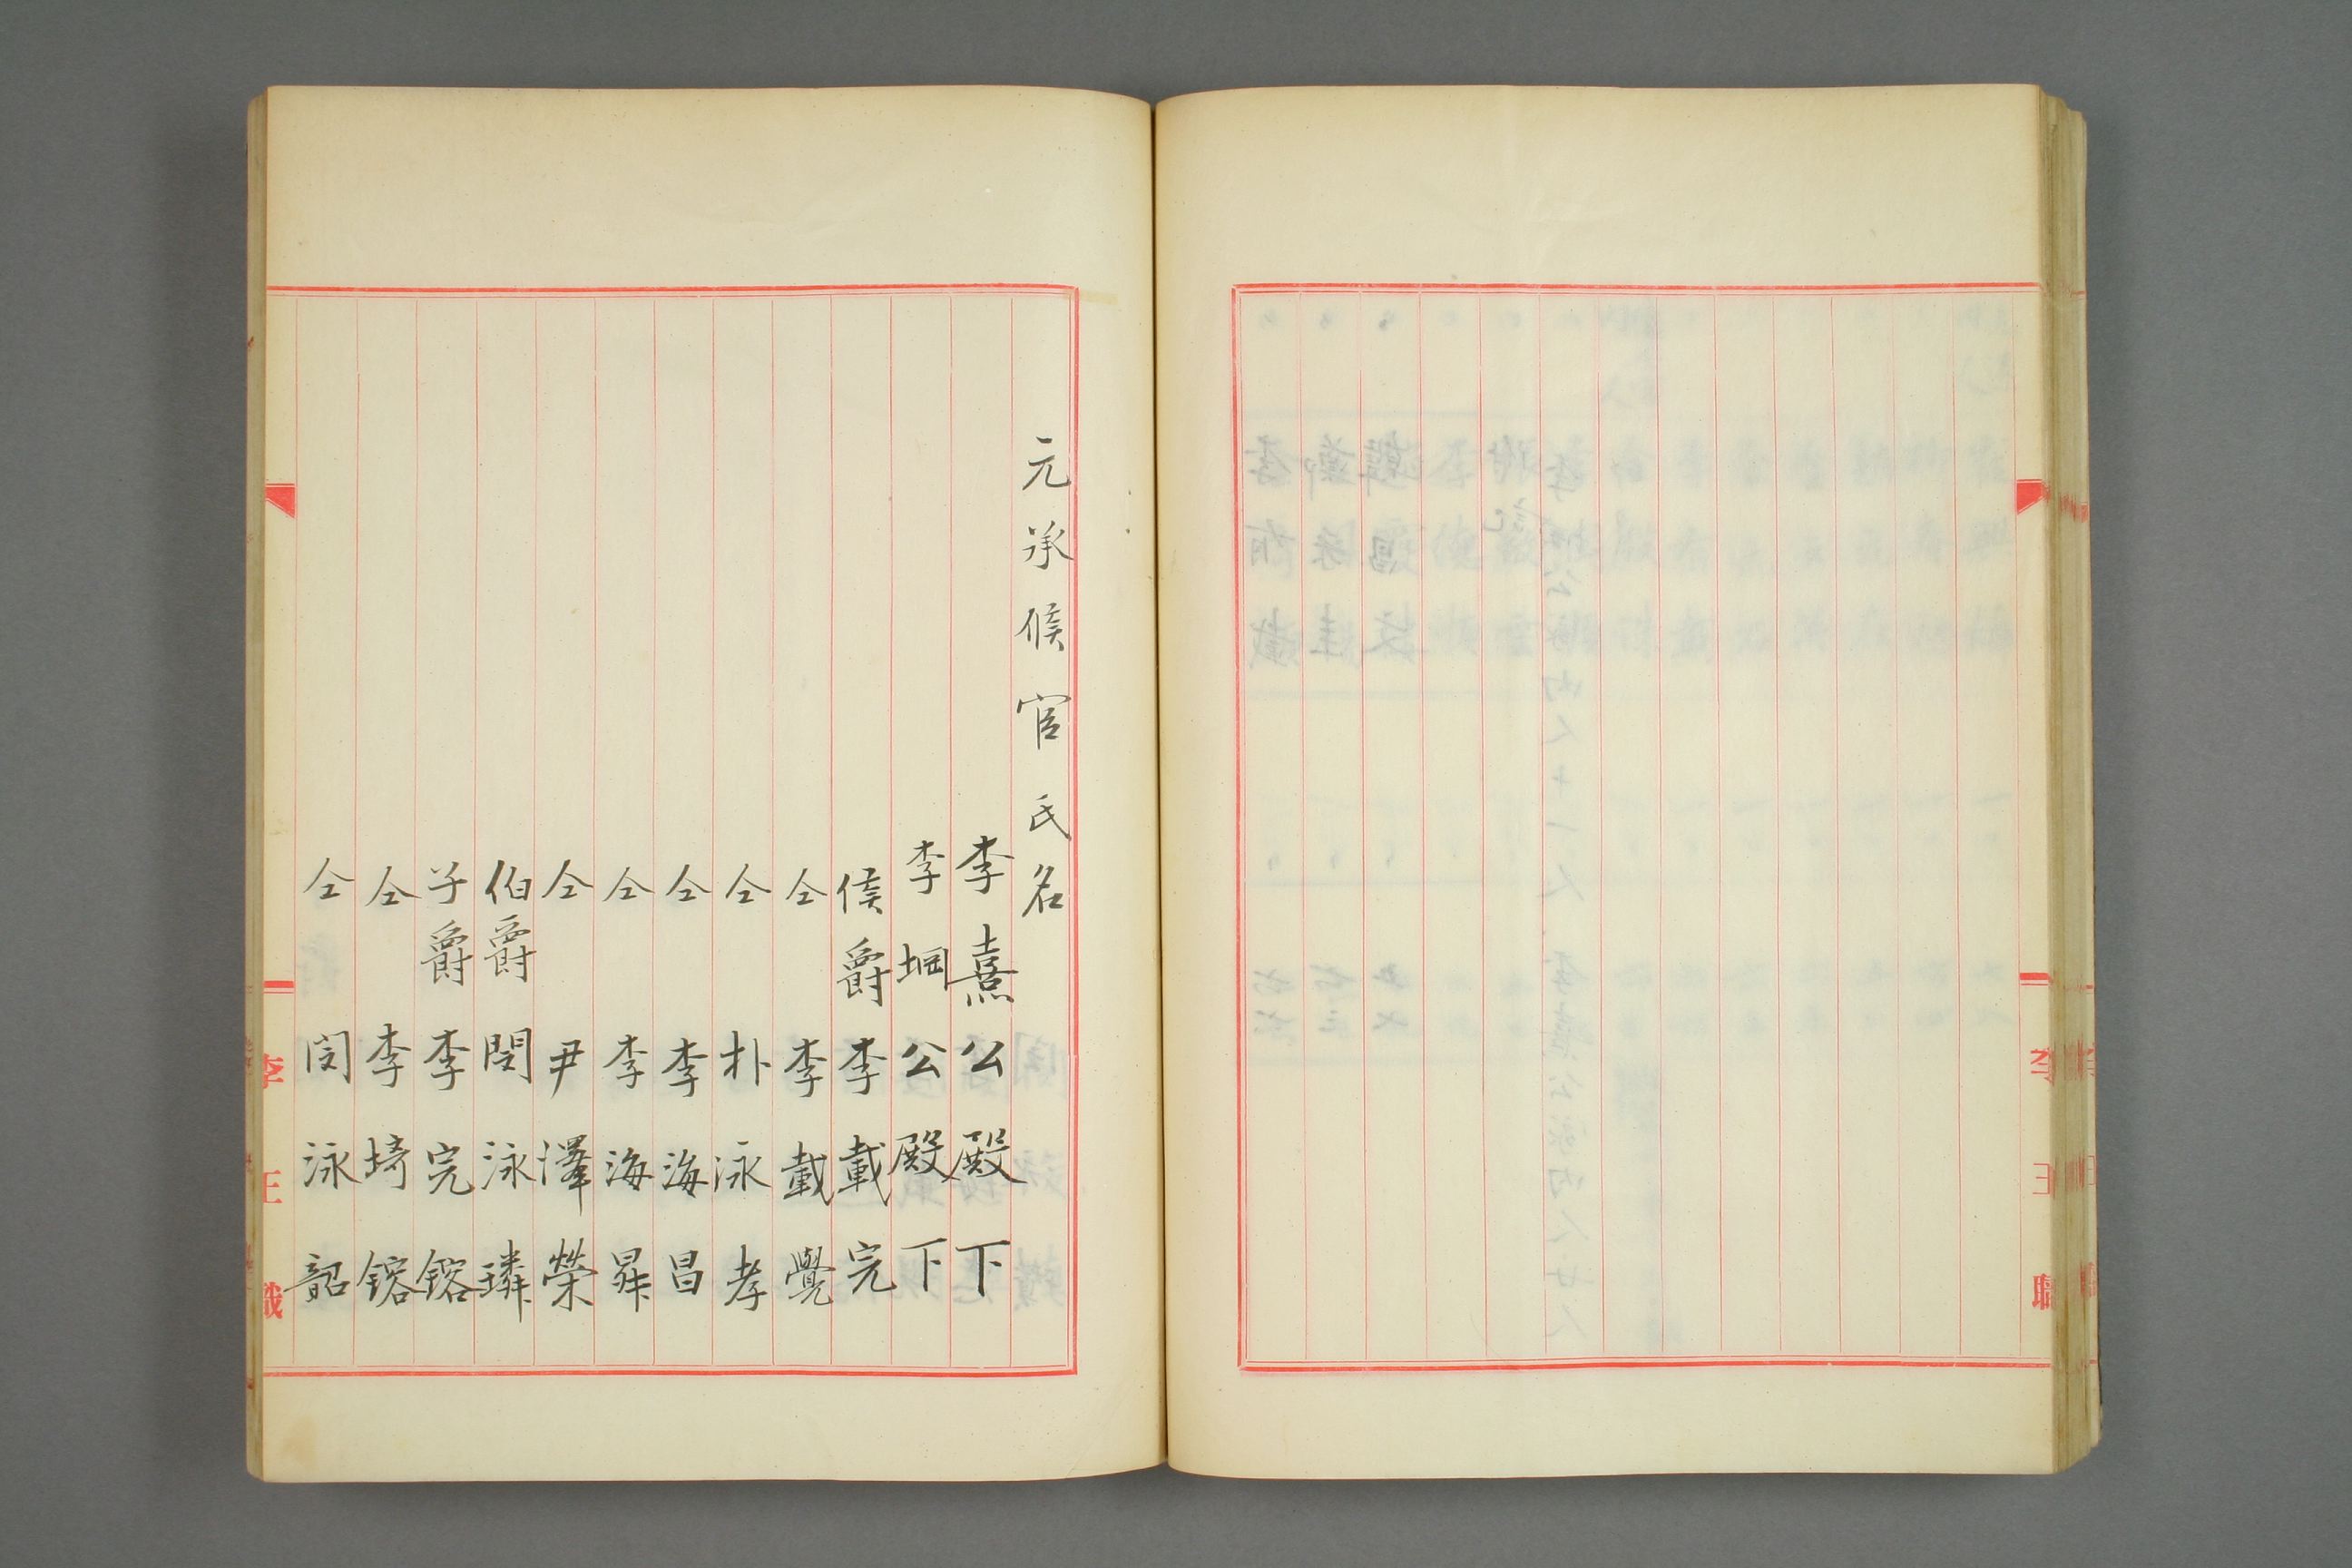 元承候官氏名
李熹公殿下
李堈公殿下
侯爵李載完
仝李載覺
仝朴泳孝
仝李海昌
仝李海昇
仝尹澤榮
伯爵閔泳璘
子爵李完鎔
仝李埼鎔
仝閔泳韶
李王職
李王職